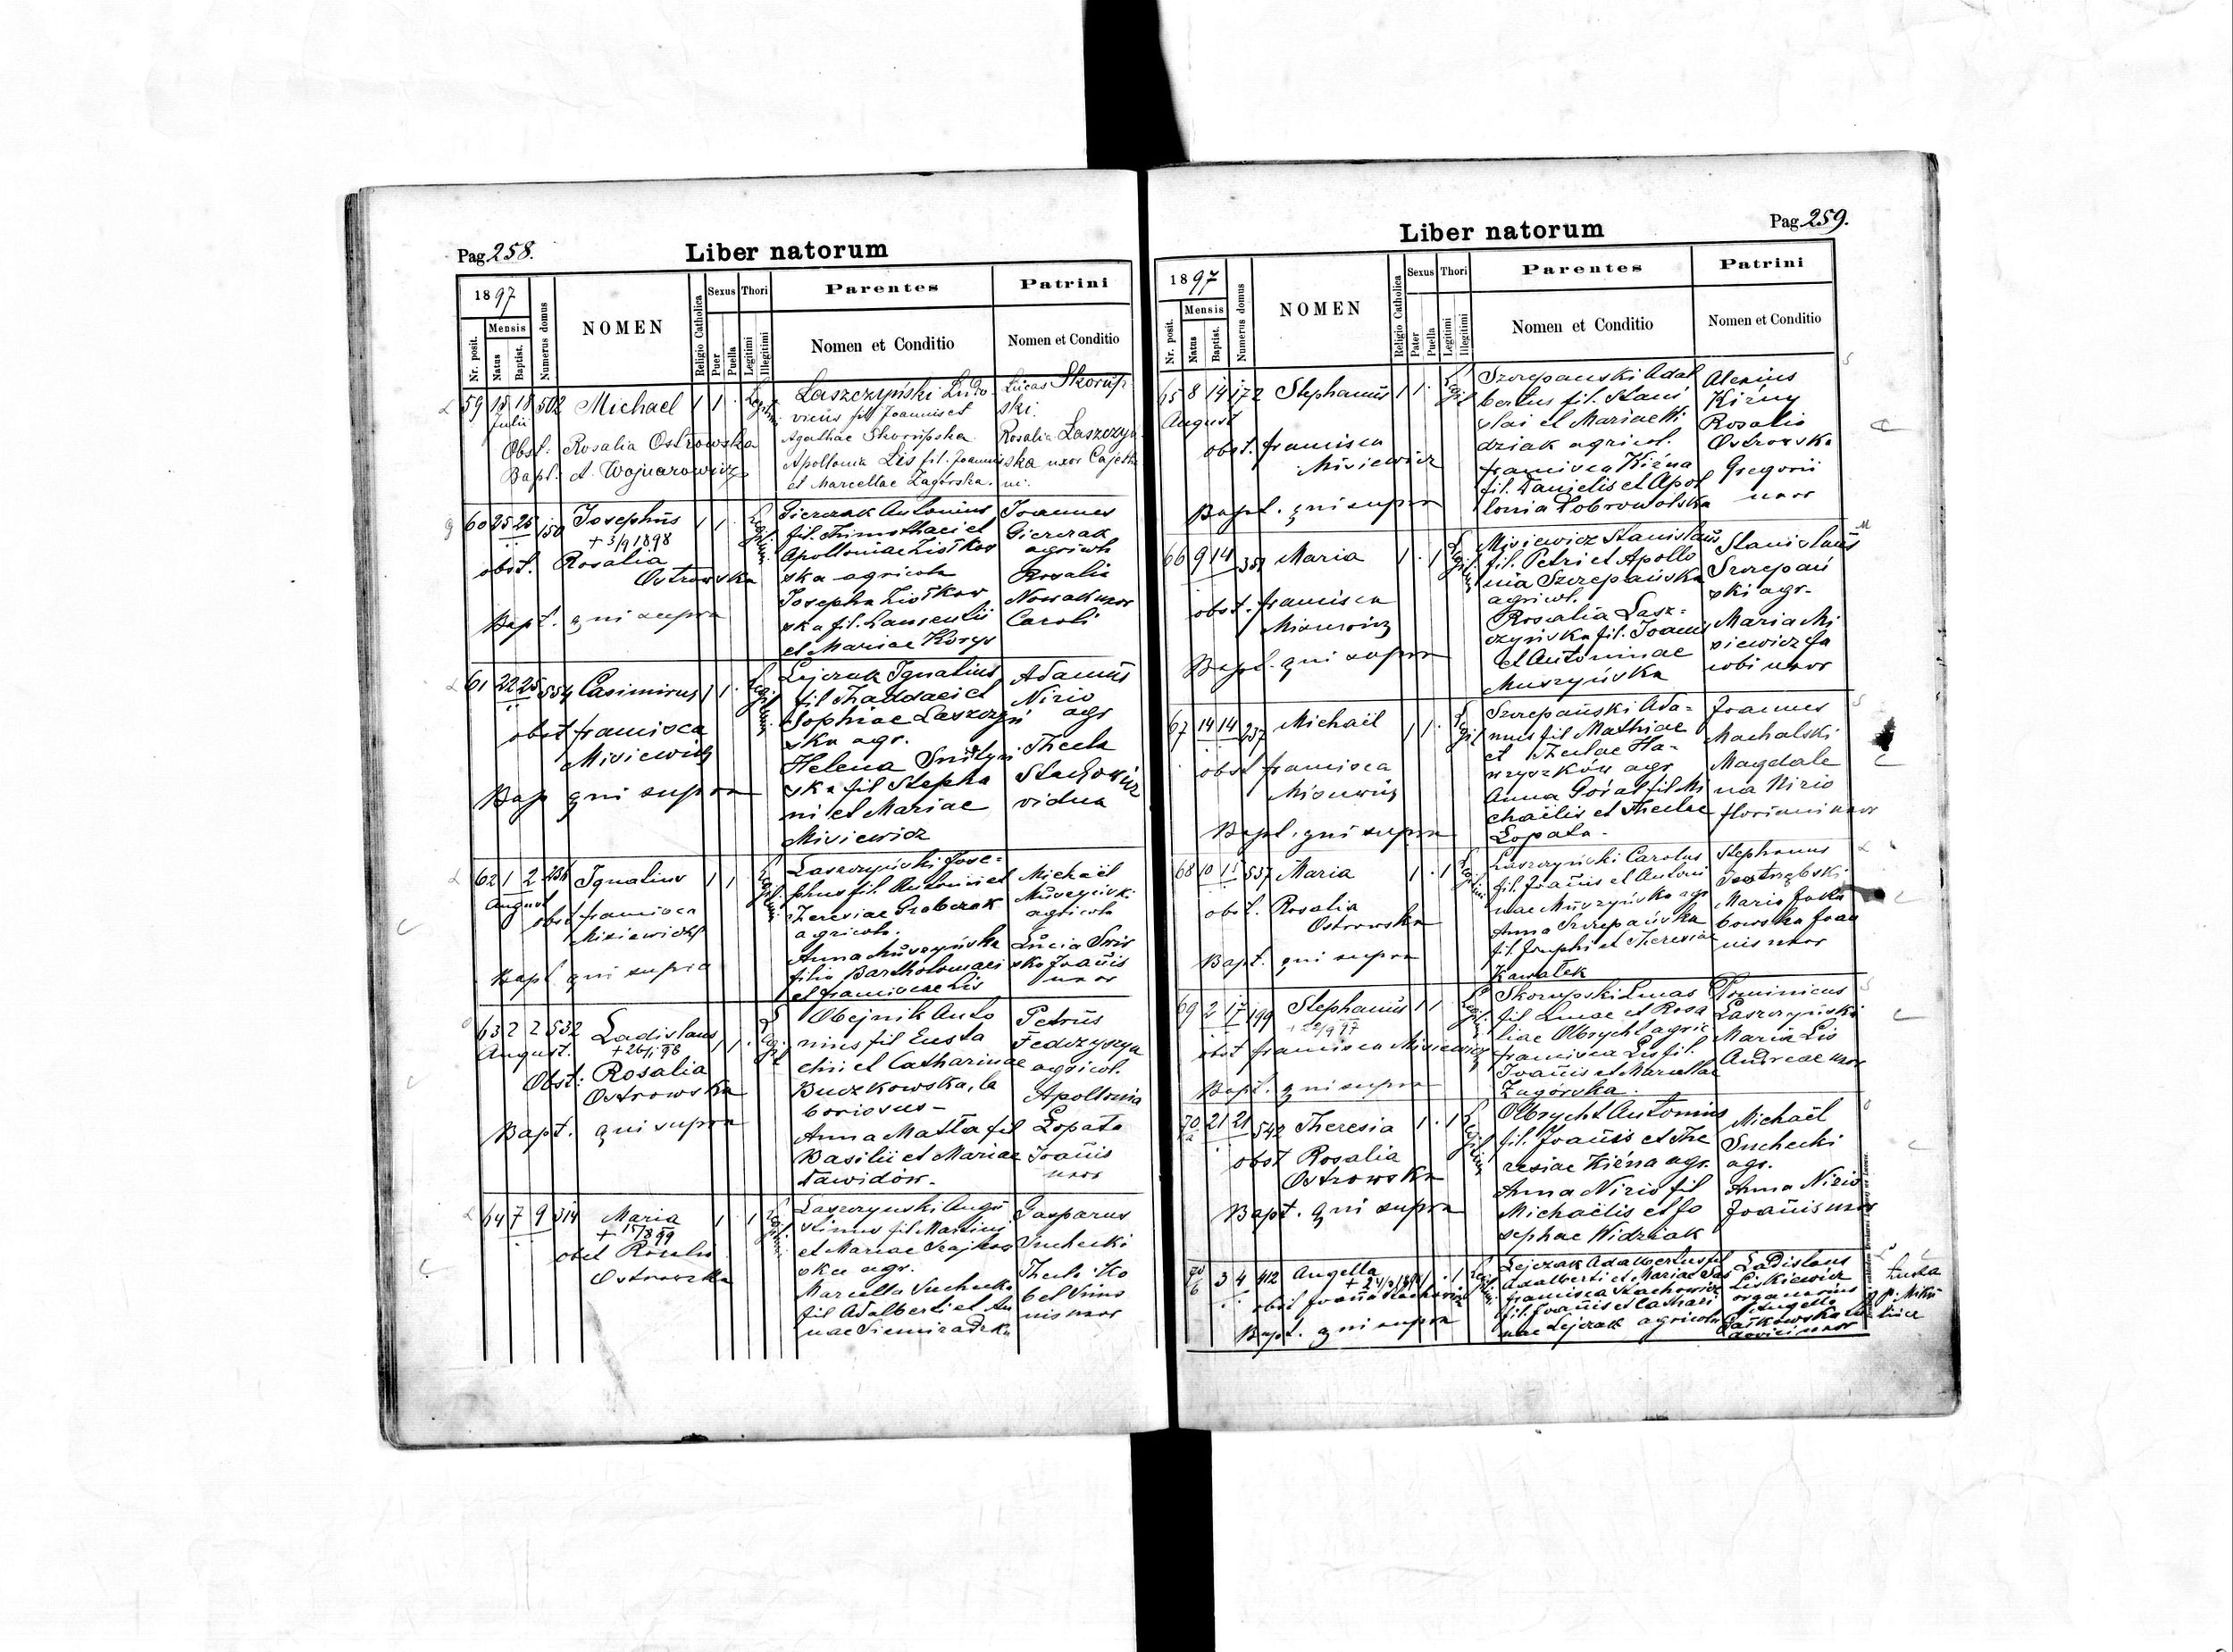 Pag 258.
Liber natorum
1897
Nr. posit.
Mensis
Natus
Baptist.
Numerus domus
NOMEN
Religio Catholica
Sexus
Puer
Puella
Thori
Legitimi
Illegitimi
Parentes
Nomen et Conditio
Patrini
Nomen et Conditio
59 15 18 502 Michael 1 1 ·
Julii
Obst: Rosalia Ostrowska
Bapt. A. Wojnarowicz
Laszczyński Ludo
vicus fil. Joannis et
Agathae Skorupska
Apollonia Lis fil. Joannis
et Marcellae Zagórska.
Lucas Skorup
ski.
Rosalia Laszczyń
ska uxor Cajeta
ni.
60 25 25 150 Josephus 1 1 ·
+ 3/9 1898
obst. Rosalia
Ostrowska
Bapt. qui supra
Gierczak Antonius
fil. Thimothaei et
Apolloniae
ska agricola
Josepha
ska fil. Laurentii
et Mariae Korys
Joannes
Gierczak
agricola
Rosalia
Nowak uxor
Caroli
61 22 25 554 Casimirus 1 1 ·
obst francisca
Misiewicz
Bap qui supra
Lejczak Ignatius
fil Thaddaei et
Sophiae Laszczyń
ska agr.
Helena
ska fil Stepha
ni et Mariae
Misiewicz
Adamus
Nizio
agr
Thecla
Stachowicz
vidua
62 1 2 256 Ignatius 1 1
August
obst francisca
Misiewicz
Bapt qui supra
Laszczyński Jose=
phus fil. Antonii et
Theresiae Grabczak
agricola.
Anna Muszyńska
filia Bartholomaei
et franciscae Lis
Michaël
Muszyński
agricola
Lucia
ska Joañis
uxor
63 2 2 532 Ladislaus 1 1 ·
August.
+ 26/1 98
Obst: Rosalia
Ostrowska
Bapt. qui supra
Obejnik Anto
nius fil Eusta
chii et Catharinae
Buczkowska, la
boriosus-
Anna Matta fil
Basilii et Mariae
Dawidów.
Petrus
Fedczyszyn
agricol.
Apollonia
Łopata
Joañis
uxor
64 7 9 314 Maria 1 · 1
+ 15/8 99
obst Rosalia
Ostrowska
Laszczynski Augu
stinus fil. Martini
et Mariae
ska agr.
Marcella Suchecka
fil Adalberti et An
nae Siemiradzka
Gasparus
Suchecki
Thecla
nis uxor
Pag 259.
Liber natorum
1897
Nr. posit.
Mensis
Natus
Baptist.
Numerus domus
NOMEN
Religio Catholica
Sexus
Pater
Puella
Thori
Legitimi
Illegitimi
Parentes
Nomen et Conditio
Patrini
Nomen et Conditio
65 8 14 172 Stephanus 1 1 ·
August
obst. francisca
Misiewicz
Bapt. qui supra
Szczepanski Adal
bertus fil. Stani
slai et Mariae Wi
dziak agricol.
francisca Kiżna
fil. Danielis et Apol
lonia Dobrowolska
Alexius
Kiżny
Rosalia
Ostrowska
Gregorii
uxor
66 9 14 351 Maria 1 · 1
obst. francisca
Misiewicz
Bapt. qui supra
Misiewicz Stanislaus
fil. Petri et Apollo
nia Szczepańska
agricol.
Rosalia Lasz=
czyńska fil. Joanis
et Antoninae
Muszyńska
Stanislaus
Szczepań
ski agr.
Maria Mi
siewicz Ja
cobi uxor
67 14 14 237 Michaël 1 1 ·
obst francisca
Misiewicz
Bapt. qui supra
Szczepański Ada=
mus fil Mathiae
et Theclae Ha=
agr
Anna Góral fil Mi
chaëlis et Theclae
Łopata.
Joannes
Machalski
Magdale
na Nizio
floriani uxor
68 10 15 537 Maria 1 · 1
obst. Rosalia
Ostrowska
Bapt. qui supra
Laszczyński Carolus
fil. Joañis et Antoni
nae Muszyńska agr
Anna Szczepańska
fil. Josephi et Theresiae
Kawałek
Stephanus
Jastrzębski
Maria Jaku
bowska Joan
nis uxor
69 2 17 199 Stephanus 1 1
obst francisca Misiewicz
Bapt. qui supra
Skorupski Lucas
fil Lucae et Rosa
liae Olbrycht agric
francisca Lis fil.
Joañis et Marcellae
Zagórska.
Dominicus
Laszczyński
Maria Lis
Andreae uxor
70 a 21 21 542 Theresia 1 · 1
obst Rosalia
Ostrowska
Bapt. qui supra
Olbrycht Antonius
fil. Joañis et The
resiae Kiżna agr.
Anna Nizio fil
Michaëlis et Jo
sephae Widziak
Michaël
Suchecki
agr.
Anna Nizio
Joañis uxor
70 b 3 4 412 Angella 1 · 1
obst Joaña Stachowicz
Bapt. qui supra
Lejczak Adalbertus fil
Adalberti et Mariae
francisca Stachowicz
fil. Joañis et Cathari
nae Lejczak agricola
Ladislaus
Liskiewicz
organarius
Angella
uxor